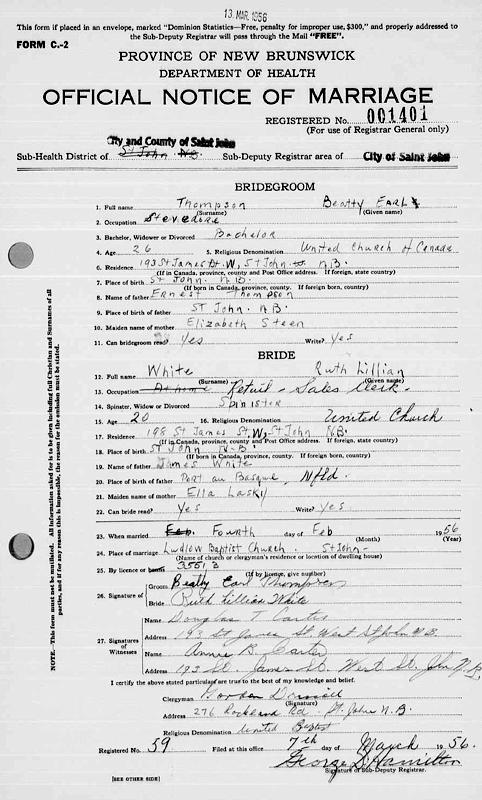 13 MAR 1956
This form if placed in an envelope, marked "Dominion Statistics—Free, penalty for improper use, $300," and properly addressed to
the Sub-Deputy Registrar will pass through the Mail "FREE".
FORM C.-2
PROVINCE OF NEW BRUNSWICK
DEPARTMENT OF HEALTH
OFFICIAL NOTICE OF MARRIAGE
REGISTERED No. 001401
(For use of Registrar General only)
City and County of Saint John
Sub-Health District of St John N.B. Sub-Deputy Registrar area of City of Saint John
BRIDEGROOM
1. Full name Thompson Beatty Earl
(Surname) (Given name)
2. Occupation Stevedore
3. Bachelor, Widower or Divorced Bachelor
4. Age 26 5. Religious Denomination United Church of Canada
6. Residence 193 St James St. W, St John N.B.
(If in Canada, province, county and Post Office address. If foreign, state country)
7. Place of birth St John. N.B.
(If born in Canada, province, county. If foreign born, country)
8. Name of father Ernest Thompson
9. Place of birth of father St John. N.B.
10. Maiden name of mother Elizabeth Steen
11. Can bridegroom read? Yes Write? Yes
BRIDE
12. Full name White Ruth Lillian
(Surname) (Given name)
13. Occupation At home Retail - Sales Clerk.
14. Spinster, Widow or Divorced Spinister
15. Age 20 16. Religious Denomination United Church
17. Residence 198 St James St. W, St John N.B.
(If in Canada, province, county and Post Office address. If foreign, state country)
18. Place of birth St John N-B.
(If born in Canada, province, county. If foreign born, country)
19. Name of father James White
20. Place of birth of father Port au Basque, Nfld.
21. Maiden name of mother Ella
22. Can bride read? Yes Write? Yes
23. When married Feb. Fourth day of Feb 1956
(Month) (Year)
24. Place of marriage Ludlow Baptist Church. St John-
(Name of church or clergyman's residence or location of dwelling house)
25. By licence or banns 35513
(If by licence, give number)
26. Signature of Groom Beatty Earl Thompson
Bride Ruth Lillian White
27. Signatures of Witnesses Douglas T Carter
Address 193 St James St West St John N.B.
Annie B. Carter
Address 193 St. James St. West St. John N.B.
I certify the above stated particulars are true to the best of my knowledge and belief.
Clergyman
(Signature)
Address 276 Rockland Rd. St. John N.B.
Religious Denomination United Baptist
Registered No. 59 Filed at this office 7th day of March 1956.
George D. Hamilton
Signature of Sub-Deputy Registrar.
[SEE OTHER SIDE]
NOTE.—This form must not be mutilated. All information asked for is to be given including full Christian and Surnames of all
parties, and if for any reason this is impossible, the reason for the omission must be stated.